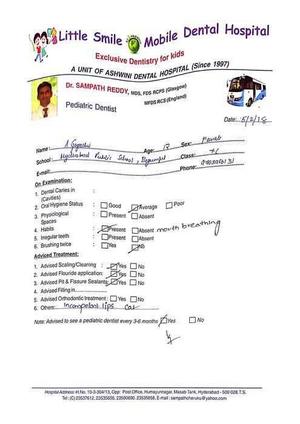 Little Smile Mobile Dental Hospital
Exclusive Dentistry for kids
A UNIT OF ASHWINI DENTAL HOSPITAL (Since 1997)
Dr. SAMPATH REDDY, MDS, FDS RCPS (Glasgow)
MFDS RCS (England)
Pediatric Dentist
Date: 5/2/18
Name: Age: 12 Sex: Female
School: Hyderabad Public School, Begumpet Class:
E-mail: Phone:
On Examination:
1. Dental Caries in :
(Cavities)
2. Oral Hygiene Status : Good Average Poor
3. Physiological : Present Absent
Spaces
4. Habits : Present Absent mouth breathing
5. Irregular teeth : Present Absent
6. Brushing twice : Yes No
Advised Treatment:
1. Advised Scaling/Cleaning : Yes No
2. Advised Flouride application : Yes No
3. Advised Pit & Fissure Sealants : Yes No
4. Advised Filling in
5. Advised Orthodontic treatment : Yes No
6. Others: Incompetent lips
Note: Advised to see a pediatric dentist every 3-6 months Yes No
Hospital Address: H.No. 10-3-304/13, Opp: Post Office, Humayunnagar, Masab Tank, Hyderabad - 500 028 T.S.
Tel: (C) 23537612, 23530695, 23500690, 23535858, E-mail: sampathcheruku@yahoo.com